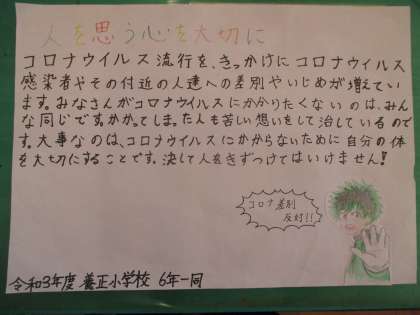 人を思う心を大切に
コロナウイルス流行を、きっかけにコロナウイルス
感染者やその付近の人達への差別やいじめが増えてい
ます。みなさんがコロナウイルスにかかりたくないのは、みん
な同じです。かかってしまった人も苦しい想いをして治しているので
す。大事なのは、コロナウイルスにかからないために自分の体
を大切にすることです。決して人をきずつけてはいけません!
コロナ差別
反対!!
令和3年度 養正小学校 6年一同